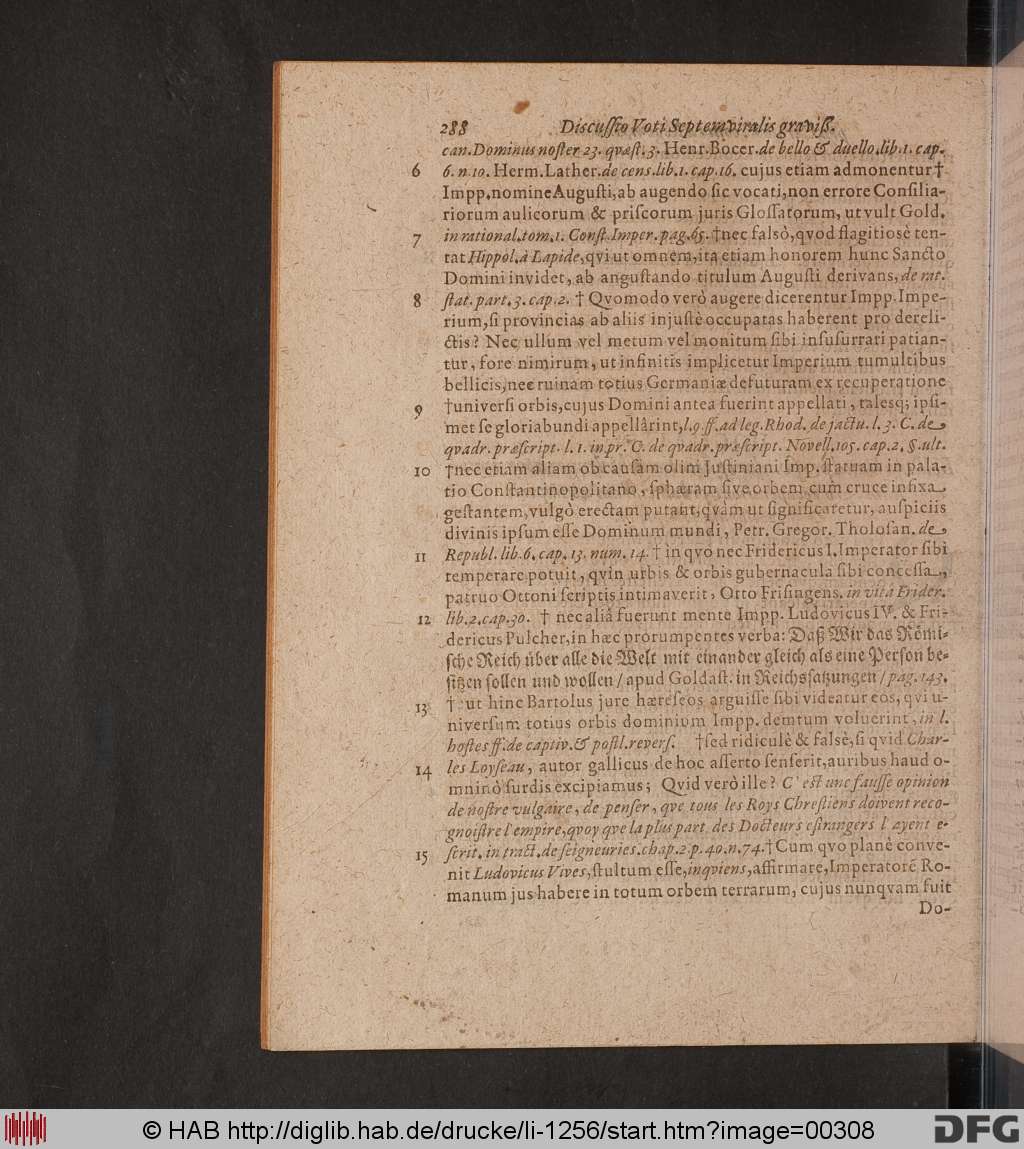 288 Discussio Voti Septemviralis graviß.
can. Dominus noster 23. qvæst. 3. Henr. Bocer. de bello & duello. lib. 1. cap.
6 6. n. 10. Herm. Lather. de cens. lib. 1. cap. 16. cujus etiam admonentur †
Impp. nomine Augusti, ab augendo sic vocati, non errore Consilia-
riorum aulicorum & priscorum juris Glossatorum, ut vult Gold.
7 in rational. tom. 1. Const. Imper. pag. 65. † nec falsò, qvod flagitiosè ten-
tat Hippol. à Lapide, qvi ut omnem, ita etiam honorem hunc Sancto
Domini invidet, ab angustando titulum Augusti derivans, de rat.
8 stat. part. 3. cap. 2. † Qvomodo verò augere dicerentur Impp. Impe-
rium, si provincias ab aliis injustè occupatas haberent pro dereli-
ctis? Nec ullum vel metum vel monitum sibi insusurrari patian-
tur, fore nimirum, ut infinitis implicetur Imperium tumultibus
bellicis, nec ruinam totius Germaniæ defuturam ex recuperatione
9 † universi orbis, cujus Domini antea fuerint appellati, talesq; ipsi-
met se gloriabundi appellârint, l. 9. ff. ad leg. Rhod. de jactu. l. 3. C. de
qvadr. præscript. l. 1. in pr. C. de qvadr. præscript. Novell. 105. cap. 2. §. ult.
10 † nec etiam aliam ob causam olim Justiniani Imp. statuam in pala-
tio Constantinopolitano, sphæram sive orbem cum cruce infixa
gestantem, vulgò erectam putant, qvàm ut significaretur, auspiciis
divinis ipsum esse Dominum mundi, Petr. Gregor. Tholosan. de
11 Republ. lib. 6. cap. 13. num. 14. † in qvo nec Fridericus I. Imperator sibi
temperare potuit, qvin urbis & orbis gubernacula sibi concessa,
patruo Ottoni scriptis intimaverit, Otto Frisingens. in vitâ Frider.
12 lib. 2. cap. 30. † nec aliâ fuerunt mente Impp. Ludovicus IV. & Fri-
dericus Pulcher, in hæc prorumpentes verba: Daß Wir das Römi-
sche Reich über alle die Welt mit einander gleich als eine Person be-
sitzen sollen und wollen / apud Goldast. in Reichssatzungen / pag. 143.
13 † ut hinc Bartolus jure hæreseos arguisse sibi videatur eos, qvi u-
niversum totius orbis dominium Impp. demtum voluerint, in l.
hostes ff. de captiv. & postl. revers. † sed ridiculè & falsè, si qvid Char-
14 les Loyseau, autor gallicus de hoc asserto senserit, auribus haud o-
mninò surdis excipiamus; Qvid verò ille? C' est une fausse opinion
de nostre vulgaire, de penser, qve tous les Roys Chrestiens doivent reco-
gnoistre l'empire, qvoy qve la plus part des Docteurs estrangers l'ayent e-
15 scrit. in tract. de seigneuries. chap. 2. p. 40. n. 74. † Cum qvo planè conve-
nit Ludovicus Vives, stultum esse, inqviens, affirmare, Imperatorē Ro-
manum jus habere in totum orbem terrarum, cujus nunqvam fuit
Do-
© HAB http://diglib.hab.de/drucke/li-1256/start.htm?image=00308
DFG